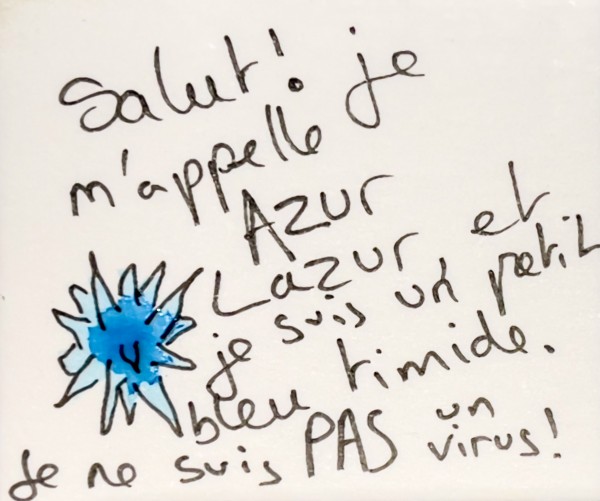 Salut! je
m'appelle
Azur
Lazur et
je suis un petit
bleu timide.
Je ne suis PAS un
virus!